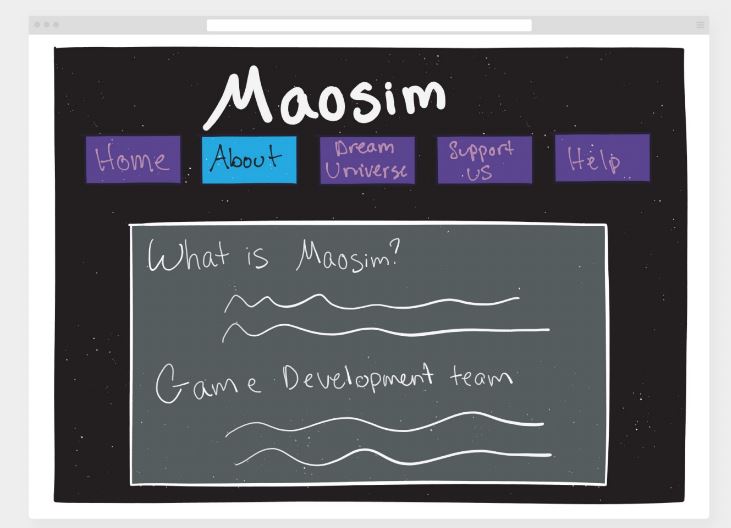 Maosim
Home
About
Dream
Universe
Support
US
Help
What is Maosim?
Game Development team